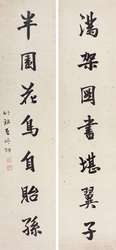 滿架圖書堪翼子
半園花鳥自貽孫